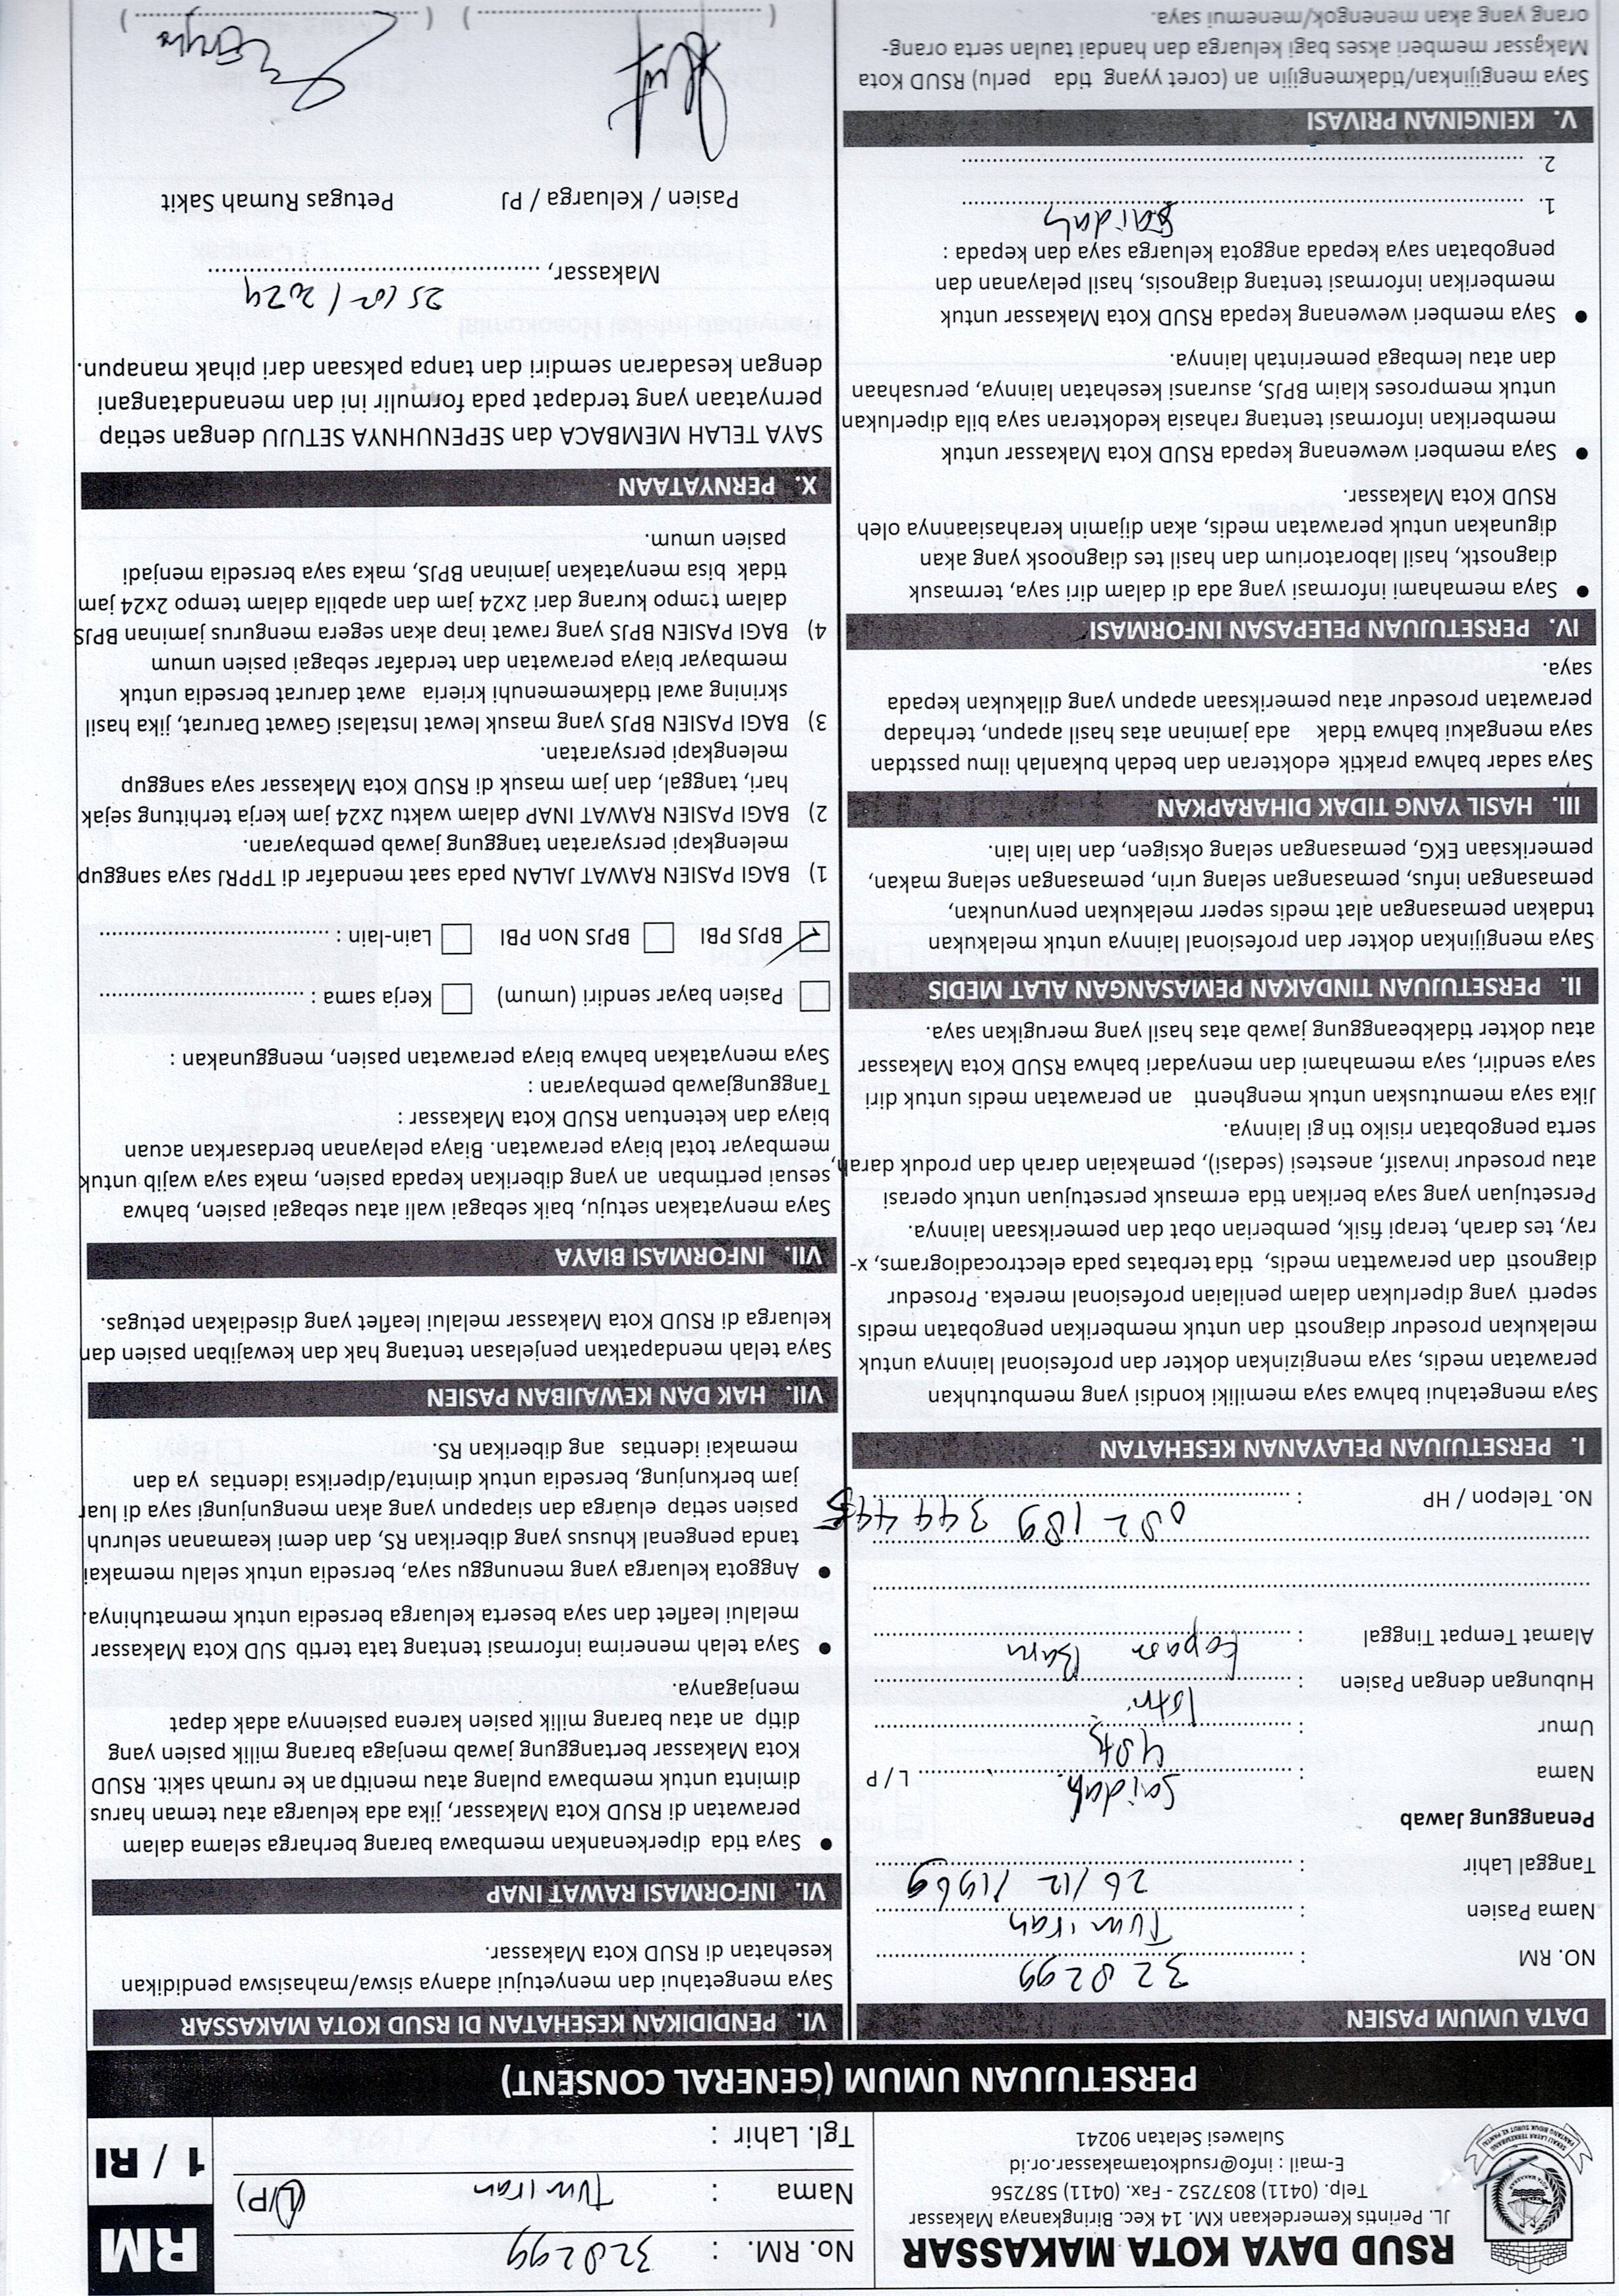 RSUD DAYA KOTA MAKASSAR
JL. Perintis Kemerdekaan KM. 14 Kec. Biringkanaya Makassar
Telp. (0411) 8037252 - Fax. (0411) 587256
E-mail : info@rsudkotamakassar.or.id
Sulawesi Selatan 90241
KOTA MAKASSAR
SEKALI LAYAR TERKEMBANG
PANTANG BIDUK SURUT KE PANTAI
No. RM. : 328299
Nama : Tumiran (L/P)
Tgl. Lahir :
RM
1 / RI
PERSETUJUAN UMUM (GENERAL CONSENT)
DATA UMUM PASIEN
NO. RM : 328299
Nama Pasien : Tumiran
Tanggal Lahir : 26/12/1969
Penanggung Jawab
Nama : Saidah. L / P
Umur : 48 th
Hubungan dengan Pasien : Istri
Alamat Tempat Tinggal : Kapasa Baru
No. Telepon / HP : 082 189 344 445
I. PERSETUJUAN PELAYANAN KESEHATAN
Saya mengetahui bahwa saya memiliki kondisi yang membutuhkan
perawatan medis, saya mengizinkan dokter dan profesional lainnya untuk
melakukan prosedur diagnosti dan untuk memberikan pengobatan medis
seperti yang diperlukan dalam penilaian profesional mereka. Prosedur
diagnosti dan perawattan medis, tida terbatas pada electrocadiograms, x-
ray, tes darah, terapi fisik, pemberian obat dan pemeriksaan lainnya.
Persetujuan yang saya berikan tida ermasuk persetujuan untuk operasi
atau prosedur invasif, anestesi (sedasi), pemakaian darah dan produk darah,
serta pengobatan risiko tin gi lainnya.
Jika saya memutuskan untuk menghenti an perawatan medis untuk diri
saya sendiri, saya memahami dan menyadari bahwa RSUD Kota Makassar
atau dokter tidakbeanggung jawab atas hasil yang merugikan saya.
II. PERSETUJUAN TINDAKAN PEMASANGAN ALAT MEDIS
Saya mengijinkan dokter dan profesional lainnya untuk melakukan
tndakan pemasangan alat medis seperr melakukan penyunukan,
pemasangan infus, pemasangan selang urin, pemasangan selang makan,
pemeriksaan EKG, pemasangan selang oksigen, dan lain lain.
III. HASIL YANG TIDAK DIHARAPKAN
Saya sadar bahwa praktik edokteran dan bedah bukanlah ilmu passtdan
saya mengakui bahwa tidak ada jaminan atas hasil apapun, terhadap
perawatan prosedur atau pemeriksaan apapun yang dilakukan kepada
saya.
IV. PERSETUJUAN PELEPASAN INFORMASI
● Saya memahami informasi yang ada di dalam diri saya, termasuk
diagnostk, hasil laboratorium dan hasil tes diagnoosk yang akan
digunakan untuk perawatan medis, akan dijamin kerahasiaannya oleh
RSUD Kota Makassar.
● Saya memberi wewenang kepada RSUD Kota Makassar untuk
memberikan informasi tentang rahasia kedokteran saya bila diperlukan
untuk memproses klaim BPJS, asuransi kesehatan lainnya, perusahaan
dan atau lembaga pemerintah lainnya.
● Saya memberi wewenang kepada RSUD Kota Makassar untuk
memberikan informasi tentang diagnosis, hasil pelayanan dan
pengobatan saya kepada anggota keluarga saya dan kepada :
1. Saidah
2.
V. KEINGINAN PRIVASI
Saya mengijinkan/tidakmengijin an (coret yyang tida perlu) RSUD Kota
Makassar memberi akses bagi keluarga dan handai taulan serta orang-
orang yang akan menengok/menemui saya.
VI. PENDIDIKAN KESEHATAN DI RSUD KOTA MAKASSAR
Saya mengetahui dan menyetujui adanya siswa/mahasiswa pendidikan
kesehatan di RSUD Kota Makassar.
VI. INFORMASI RAWAT INAP
● Saya tida diperkenankan membawa barang berharga selama dalam
perawatan di RSUD Kota Makassar, jika ada keluarga atau teman harus
diminta untuk membawa pulang atau menitip an ke rumah sakit. RSUD
Kota Makassar bertanggung jawab menjaga barang milik pasien yang
ditip an atau barang milik pasien karena pasiennya adak dapat
menjaganya.
● Saya telah menerima informasi tentang tata tertib SUD Kota Makassar
melalui leaflet dan saya beserta keluarga bersedia untuk mematuhinya.
● Anggota keluarga yang menunggu saya, bersedia untuk selalu memakai
tanda pengenal khusus yang diberikan RS, dan demi keamanan seluruh
pasien setiap eluarga dan siapapun yang akan mengunjungi saya di luar
jam berkunjung, bersedia untuk diminta/diperiksa identias ya dan
memakai identias ang diberikan RS.
VII. HAK DAN KEWAJIBAN PASIEN
Saya telah mendapatkan penjelasan tentang hak dan kewajiban pasien dan
keluarga di RSUD Kota Makassar melalui leaflet yang disediakan petugas.
VII. INFORMASI BIAYA
Saya menyatakan setuju, baik sebagai wali atau sebagai pasien, bahwa
sesuai pertimban an yang diberikan kepada pasien, maka saya wajib untuk
membayar total biaya perawatan. Biaya pelayanan berdasarkan acuan
biaya dan ketentuan RSUD Kota Makassar :
Tanggungjawab pembayaran :
Saya menyatakan bahwa biaya perawatan pasien, menggunakan :
Pasien bayar sendiri (umum) Kerja sama :
✓ BPJS PBI BPJS Non PBI Lain-lain :
1) BAGI PASIEN RAWAT JALAN pada saat mendafar di TPPRJ saya sanggup
melengkapi persyaratan tanggung jawab pembayaran.
2) BAGI PASIEN RAWAT INAP dalam waktu 2x24 jam kerja terhitung sejak
hari, tanggal, dan jam masuk di RSUD Kota Makassar saya sanggup
melengkapi persyaratan.
3) BAGI PASIEN BPJS yang masuk lewat Instalasi Gawat Darurat, jika hasil
skrining awal tidakmemenuhi krieria awat darurat bersedia untuk
membayar biaya perawatan dan terdafar sebagai pasien umum
4) BAGI PASIEN BPJS yang rawat inap akan segera mengurus jaminan BPJS
dalam tempo kurang dari 2x24 jam dan apabila dalam tempo 2x24 jam
tidak bisa menyatakan jaminan BPJS, maka saya bersedia menjadi
pasien umum.
X. PERNYATAAN
SAYA TELAH MEMBACA dan SEPENUHNYA SETUJU dengan setiap
pernyataan yang terdapat pada formulir ini dan menandatangani
dengan kesadaran semdiri dan tanpa paksaan dari pihak manapun.
Makassar, 25/02/2024
Pasien / Keluarga / PJ Petugas Rumah Sakit